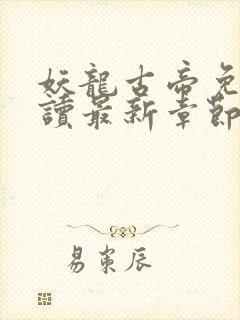 妖龍古帝免
讀最新章節
易東辰